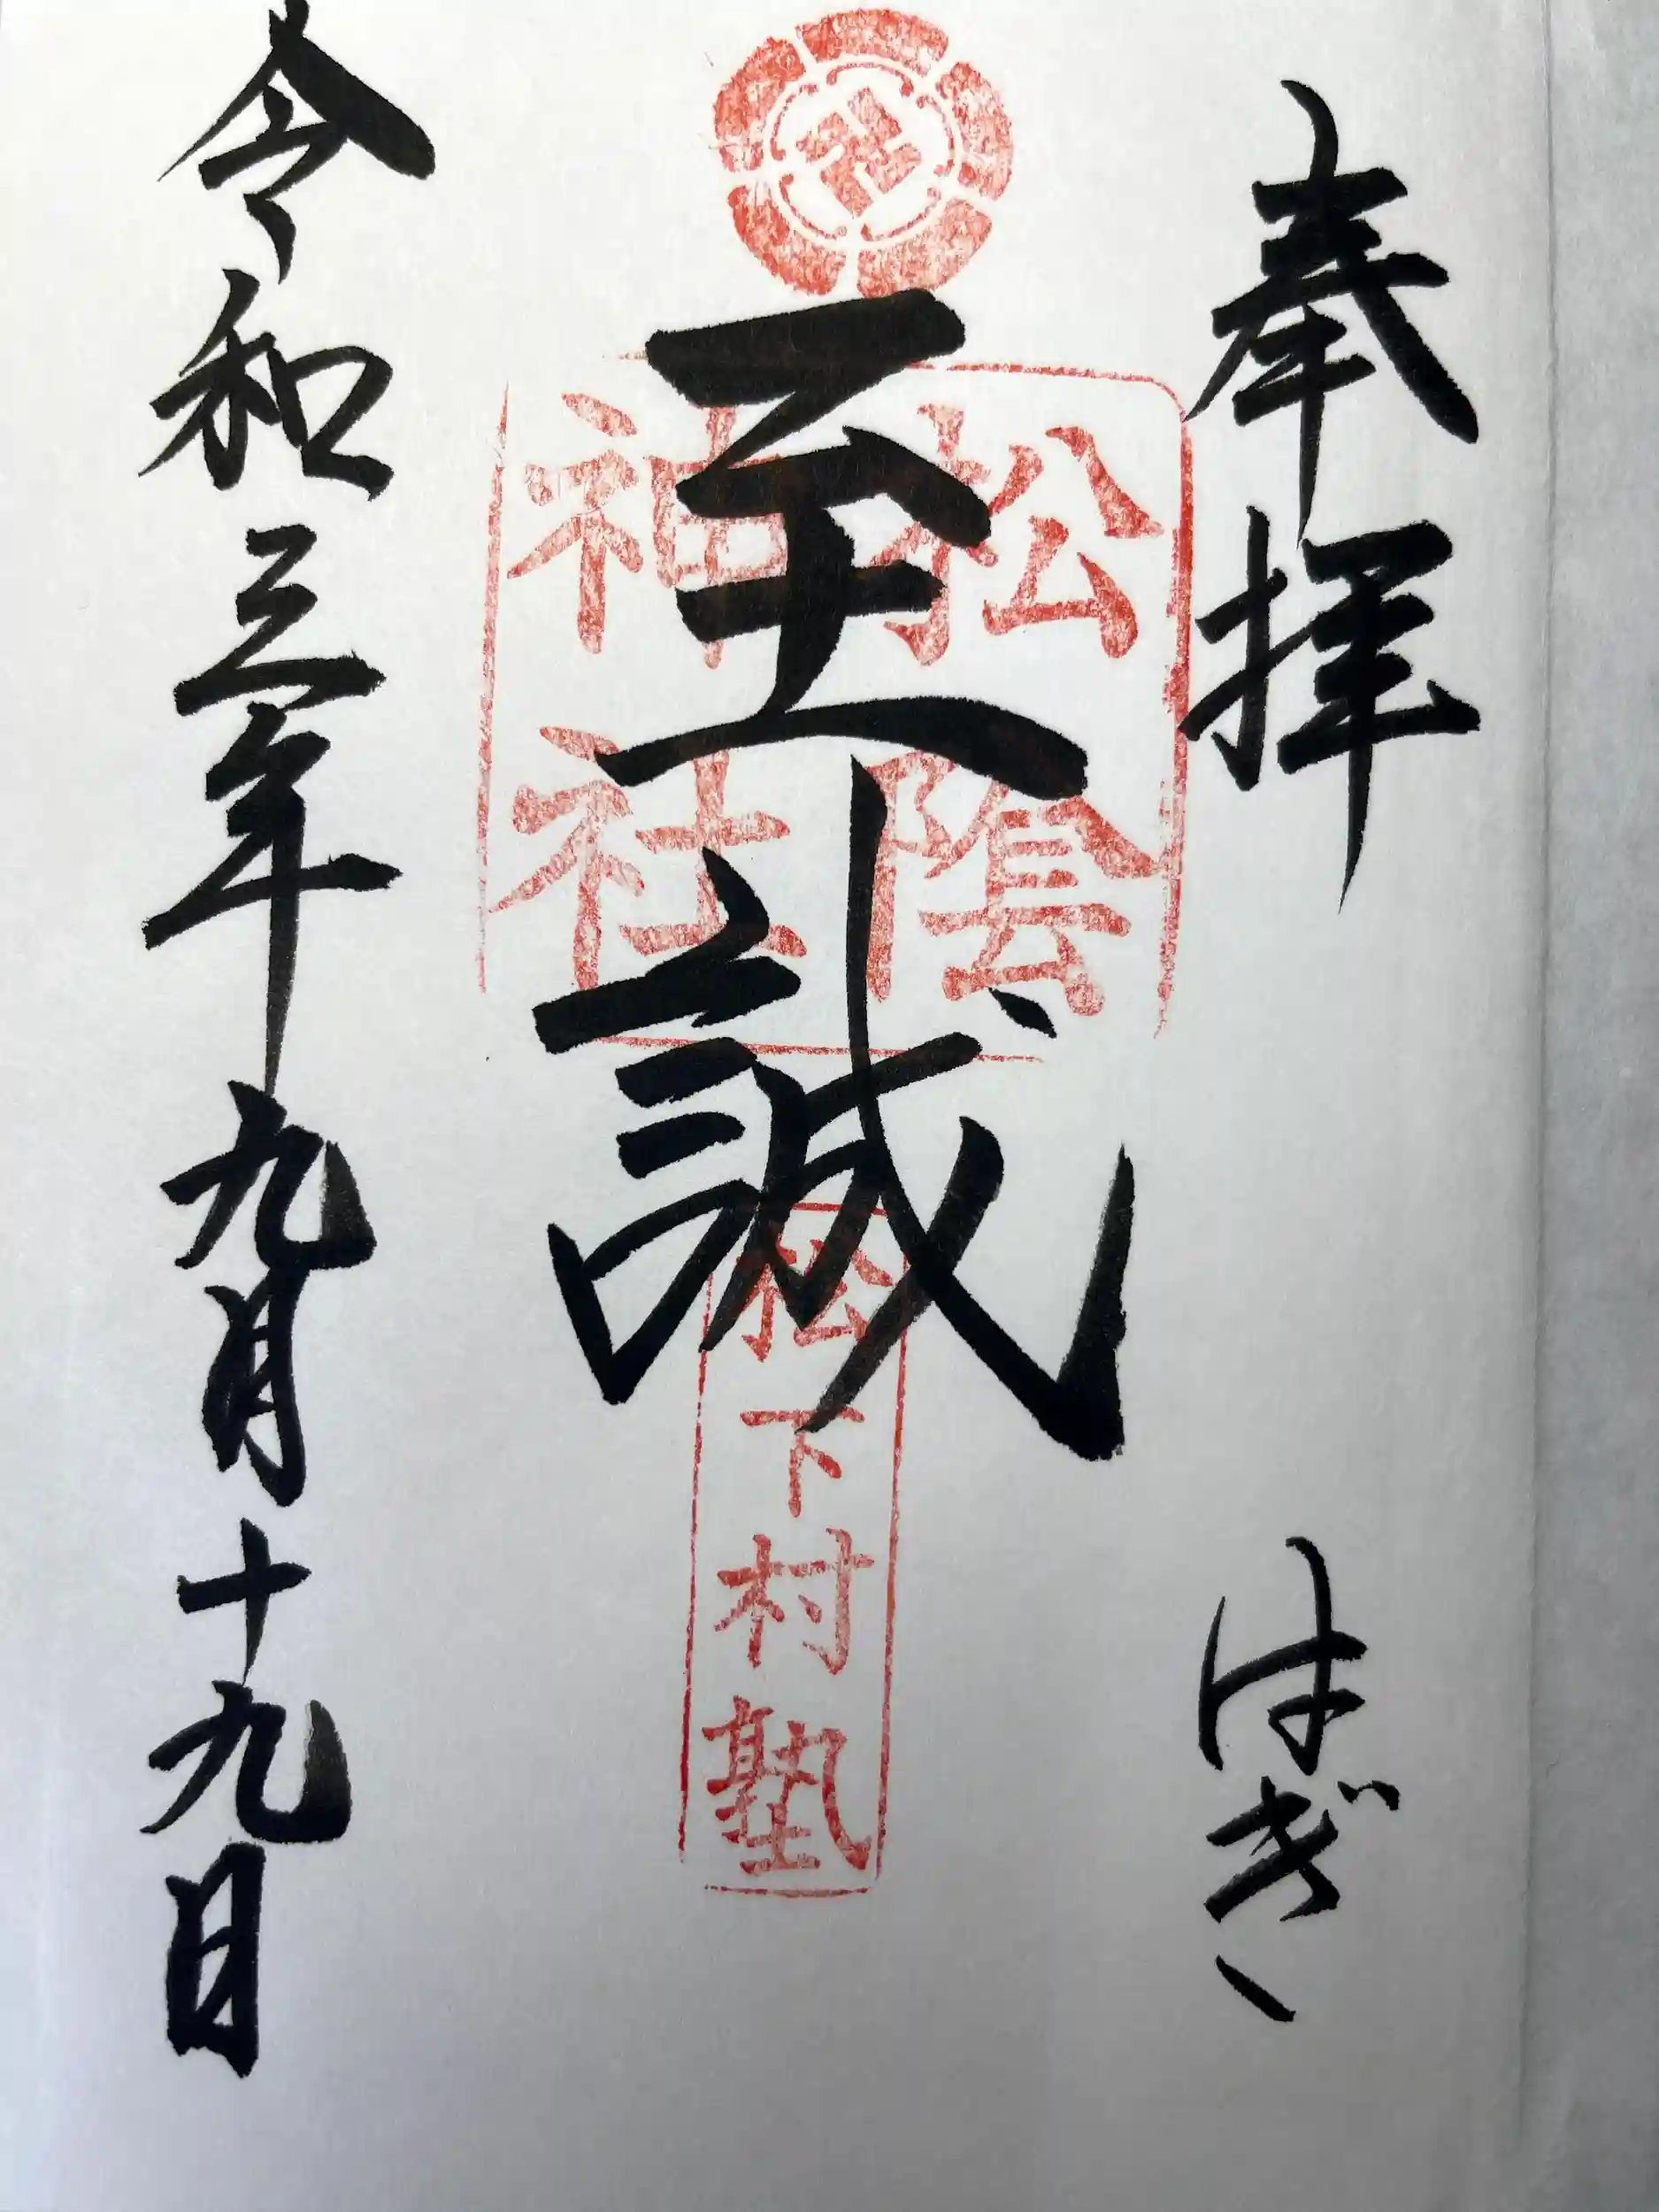 奉拝 はぎ
至誠
松陰
神社
松下村塾
令和三年九月十九日